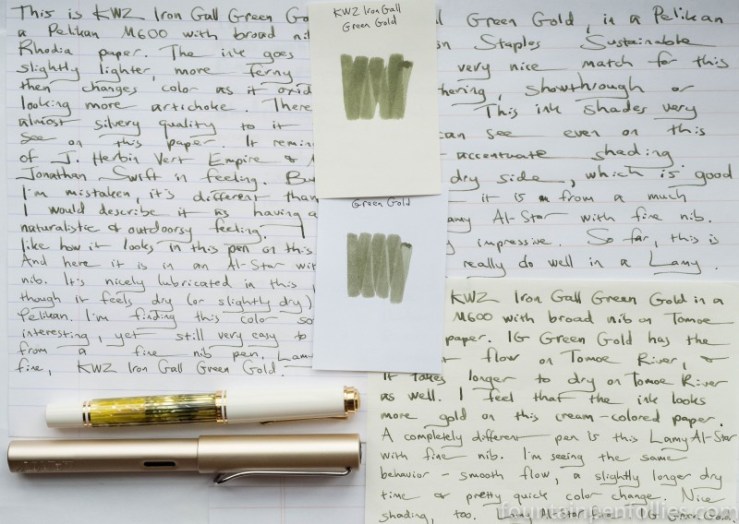 This is KWZ Iron Gall Green Go
a Pelikan M600 with broad nib
Rhodia paper. The ink goes
slightly lighter, more ferny
then changes color as it oxid
looking more artichoke. There
almost silvery quality to it
see on this paper. It remin
of J. Herbin Vert Empire &
Jonathan Swift in feeling. Bu
I'm mistaken, it's different than
I would describe it as having a
naturalistic & outdoorsy feeling.
like how it looks in this pen on this
And here it is in an Al-Star wit
nib. It's nicely lubricated in this
though it feels dry (or slightly dry)
Pelikan. I'm finding this color so
interesting, yet still very easy to
from a fine nib pen. Lam
fine, KWZ Iron Gall Green Gold.
KWZ Iron Gall
Green Gold
Green Gold
Green Gold, in a Pelikan
on Staples Sustainable
very nice match for this
thering, showthrough or
This ink shades very
can see even on this
accentuate shading
dry side, which is good
it is from a much
amy Al-Star with fine nib.
y impressive. So far, this is
really do well in a Lamy.
KWZ Iron Gall Green Gold in a
M600 with broad nib on Tomoe
paper. IG Green Gold has the
flow on Tomoe River, &
It takes longer to dry on Tomoe River
as well. I feel that the ink looks
more gold on this cream-colored paper.
A completely different pen is this Lamy Al-Star
with fine nib. I'm seeing the same
behavior - smooth flow, a slightly longer dry
time or pretty quick color change. Nice
shading, too. Lamy Al-Star fine, IG Green Gold
fountainpenfollies.com